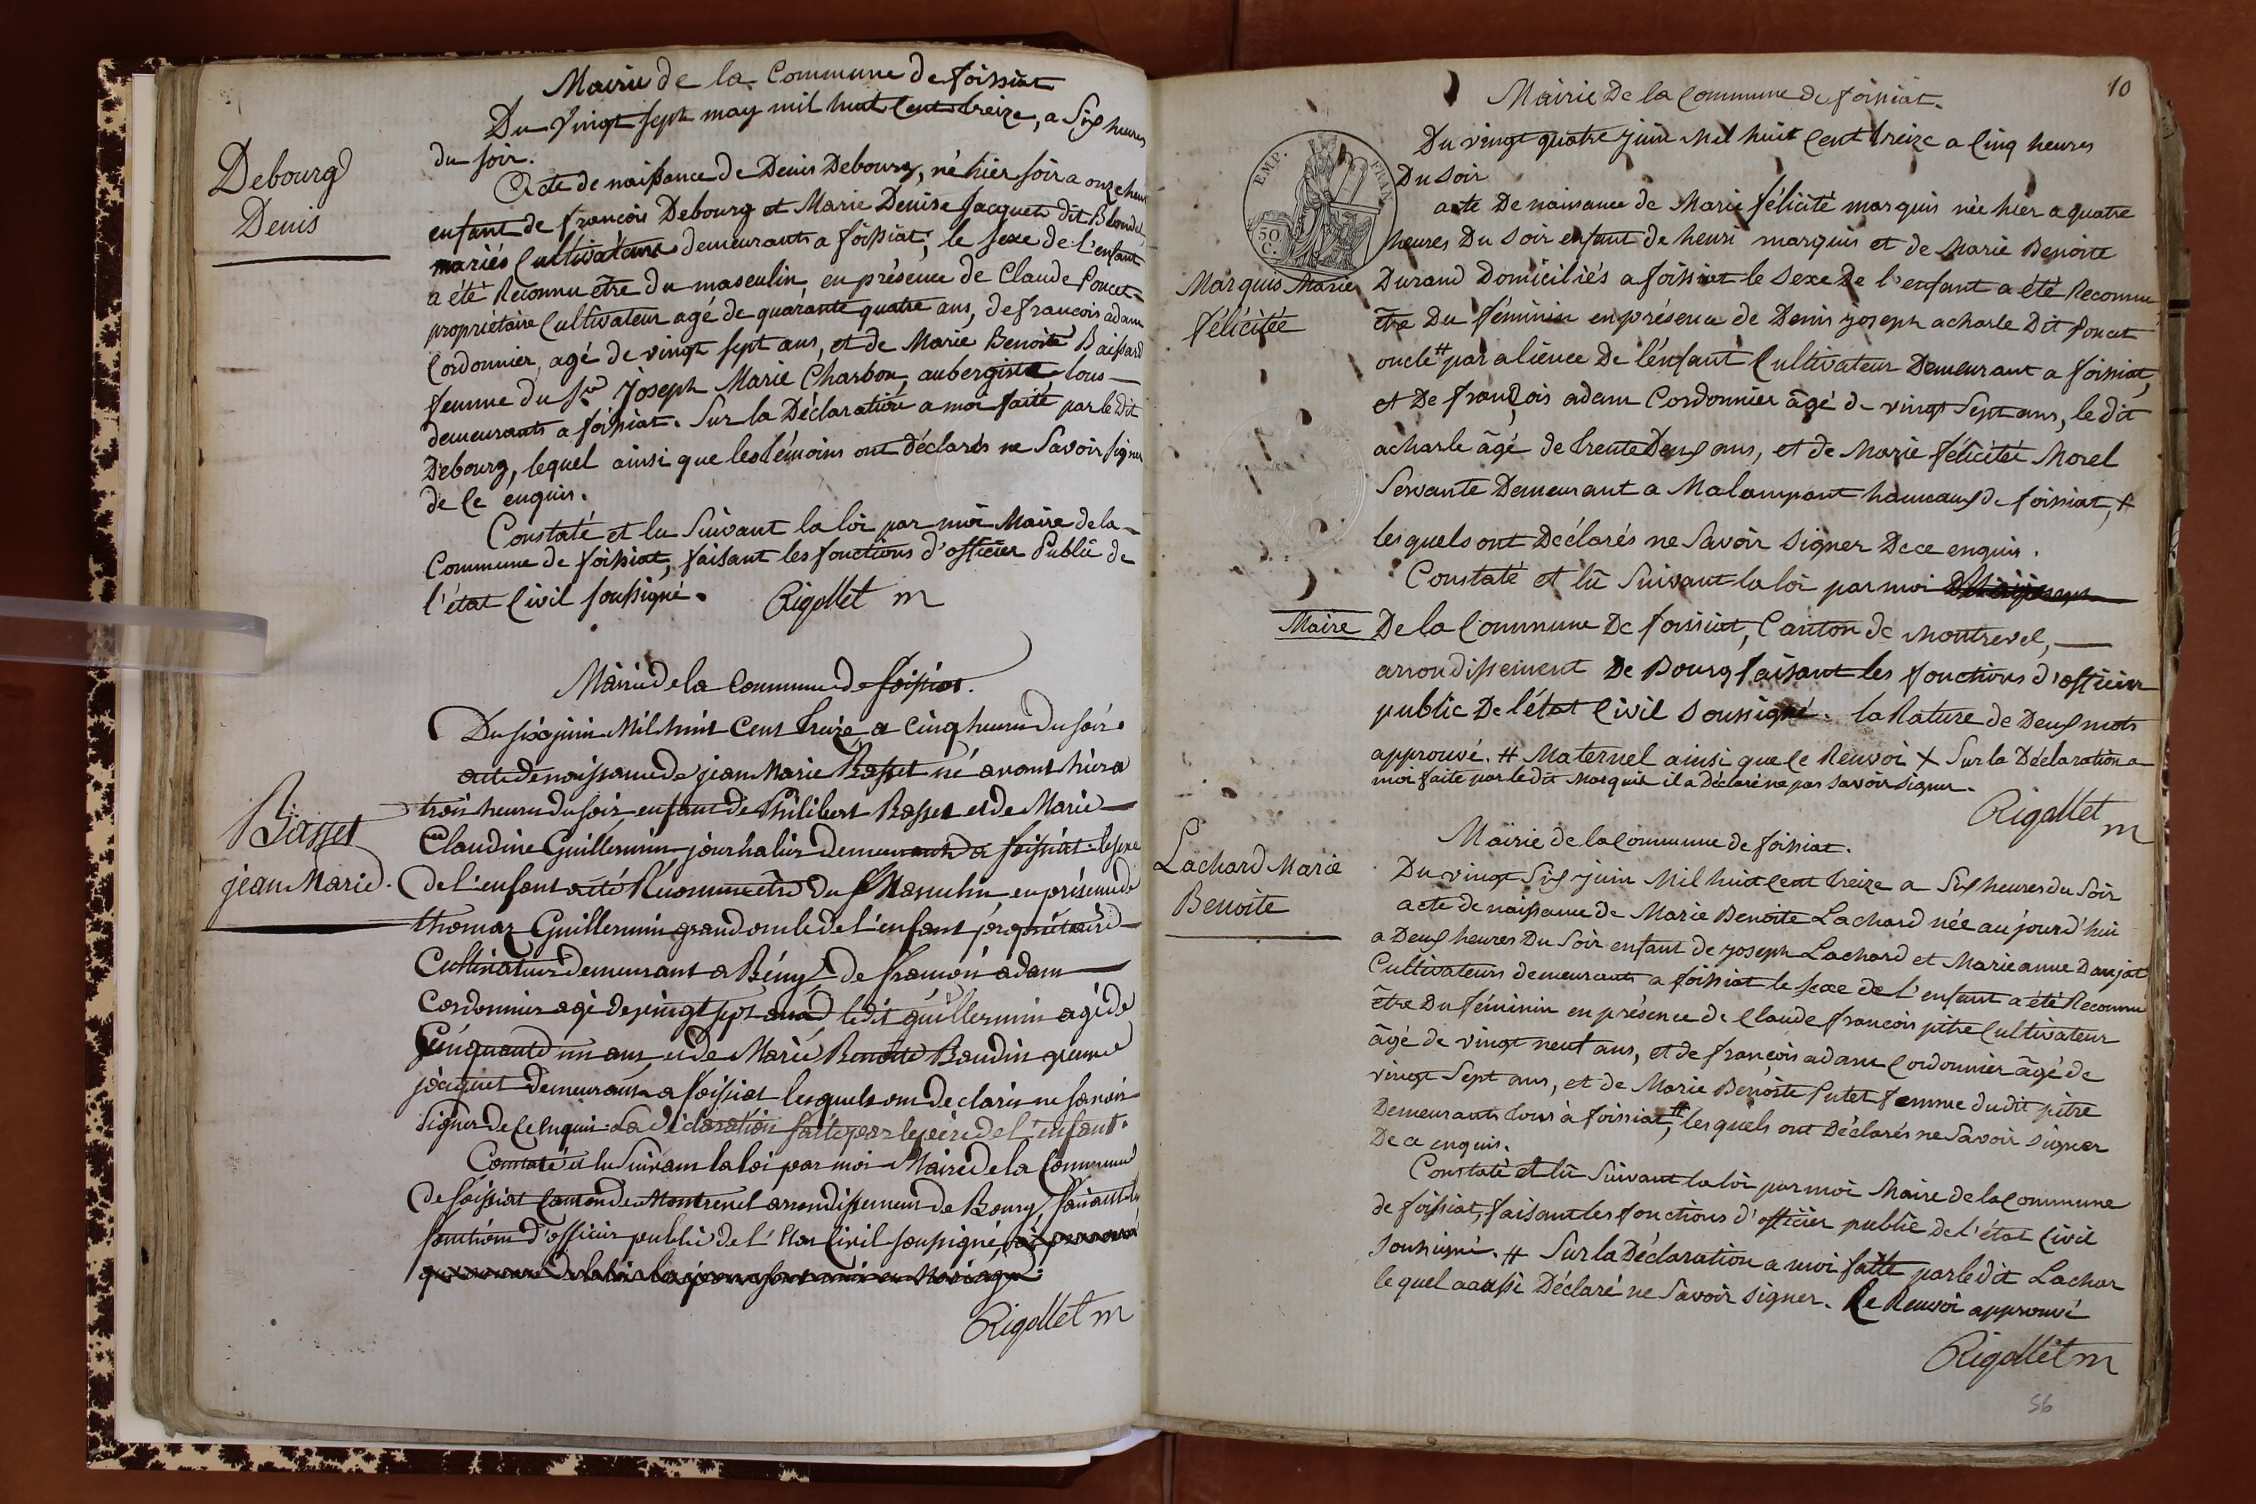 Mairie de la Commune de foissiat
Du vingt sept may mil huit Cent treize, a Six heures
du soir.
Debourg
Denis
Acte de naissance de Denis Debourg, né hier soir a onze heures
enfant de françois Debourg et Marie Denise Jacquet dit Blondel
mariés Cultivateurs demeurants a foissiat, le sexe de l'enfant
a été Reconnu être du masculin en présence de Claude Poncet
propriétaire Cultivateur agé de quarante quatre ans, de françois adam
Cordonnier, agé de vingt sept ans, et de Marie Benoite Baissard
femme du Sr Joseph Marie Charbon, aubergiste, tous
demeurants a foissiat. Sur la Déclaration a moi faite par le dit
Debourg, lequel ainsi que les témoins ont déclarés ne Savoir signer
de ce enquis.
Constaté et lu Suivant la loi par moi Maire de la
Commune de foissiat, faisant les fonctions d'officier Public de
l'état Civil soussigné. Rigollet m
Mairie de la Commune de foissiat.
Du six juin Mil huit Cent treize a Cinq heures du soir
Basset
jean Marie.
acte de naissance de jean Marie Basset né avant hier a
trois heures du soir enfant de Philibert Basset et de Marie
Claudine Guillermin journalier demeurants a foissiat. le sexe
de l'enfant a été Reconnu être du Masculin, en présence de
thomas Guillermin grand oncle de l'enfant propriétaire
Cultivateur demeurant a Bény, de françois adam
Cordonnier agé de vingt sept ans le dit guillermin agé de
Cinquante un ans et de Marie Benoite Baudin femme
jacquet demeurants a foissiat lesquels ont déclarés ne savoir
signer de Ce enquis. La déclaration faite par le père de l'enfant.
Constaté et lu Suivant la loi par moi Maire de la Commune
de foissiat Canton de Montrevel arrondissement de Bourg, faisant les
fonctions d'officier public de l'Etat Civil soussigné,
Rigollet m
10
Mairie De la Commune de foissiat.
Du vingt quatre juin Mil huit Cent treize a Cinq heures
Du soir
EMP. FRAN.
50
C.
Marquis Marie
félicitée
acte De naissance de Marie félicité marquis née hier a quatre
heures Du soir enfant de henri marquis et de Marie Benoite
Durand Domiciliés a foissiat le sexe De l'enfant a été Reconnu
être Du féminin en présence de Denis joseph acharle Dit poncet
oncle # par alience De l'enfant Cultivateur Demeurant a foissiat,
et De françois adam Cordonnier âgé de vingt Sept ans, le dit
acharle âgé de trente Deux ans, et de Marie félicitée Morel
Servante Demeurant a Malampant hameaux de foissiat, X
lesquels ont Déclarés ne Savoir Signer De ce enquis.
Constaté et lû Suivant la loi par moi
Maire De la Commune De foissiat, Canton de Montrevel,
arrondissement De Bourg faisant les fonctions d'officier
public De l'état Civil Soussigné. la Rature de Deux mots
approuvé. # Maternel ainsi que le Renvoi X Sur la Déclaration a
moi faite par le dit Marquis il a Déclaré ne pas savoir signer.
Rigollet m
Mairie de la Commune de foissiat.
Lachard Marie
Benoite
Du vingt Six juin Mil huit Cent treize a Six heures du Soir
acte de naissance de Marie Benoite Lachard née aujourd'hui
a Deux heures Du Soir enfant de joseph Lachard et Marie anne Daujat
Cultivateurs demeurants a foissiat le sexe de l'enfant a été Reconnu
être Du féminin en présence de Claude françois pitre Cultivateur
âgé de vingt neuf ans, et de françois adam Cordonnier âgé de
vingt Sept ans, et de Marie Benoite Putet femme dudit pitre
Demeurants tous à foissiat, # lesquels ont Déclarés ne Savoir signer
De ce enquis.
Constaté et lû Suivant la loi par moi Maire de la Commune
de foissiat, faisant les fonctions d'officier public de l'état Civil
Soussigné. # Sur la Déclaration a moi faite par le dit Lachar
lequel a aussi Déclaré ne Savoir signer. le Renvoi approuvé
Rigollet m
56